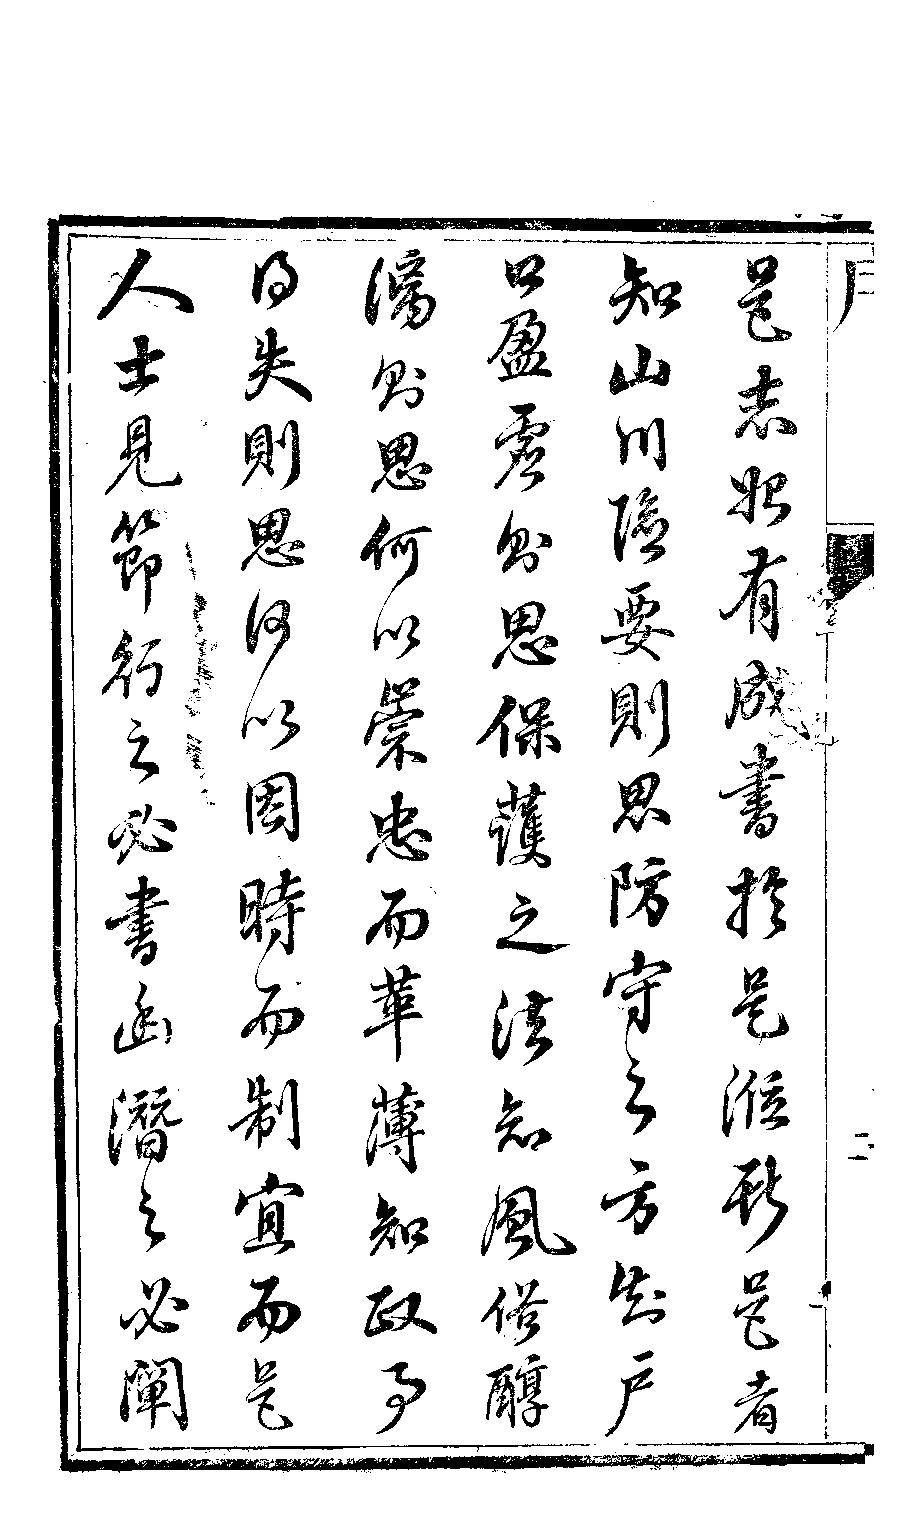 邑志始有成書於是涖斯邑者
知山川險要則思防守之方知戶
口盈虛則思保護之法知風俗醇
漓則思何以崇忠而革薄知政事
得失則思何以因時而制宜而邑
人士見節行之必書幽潛之必闡